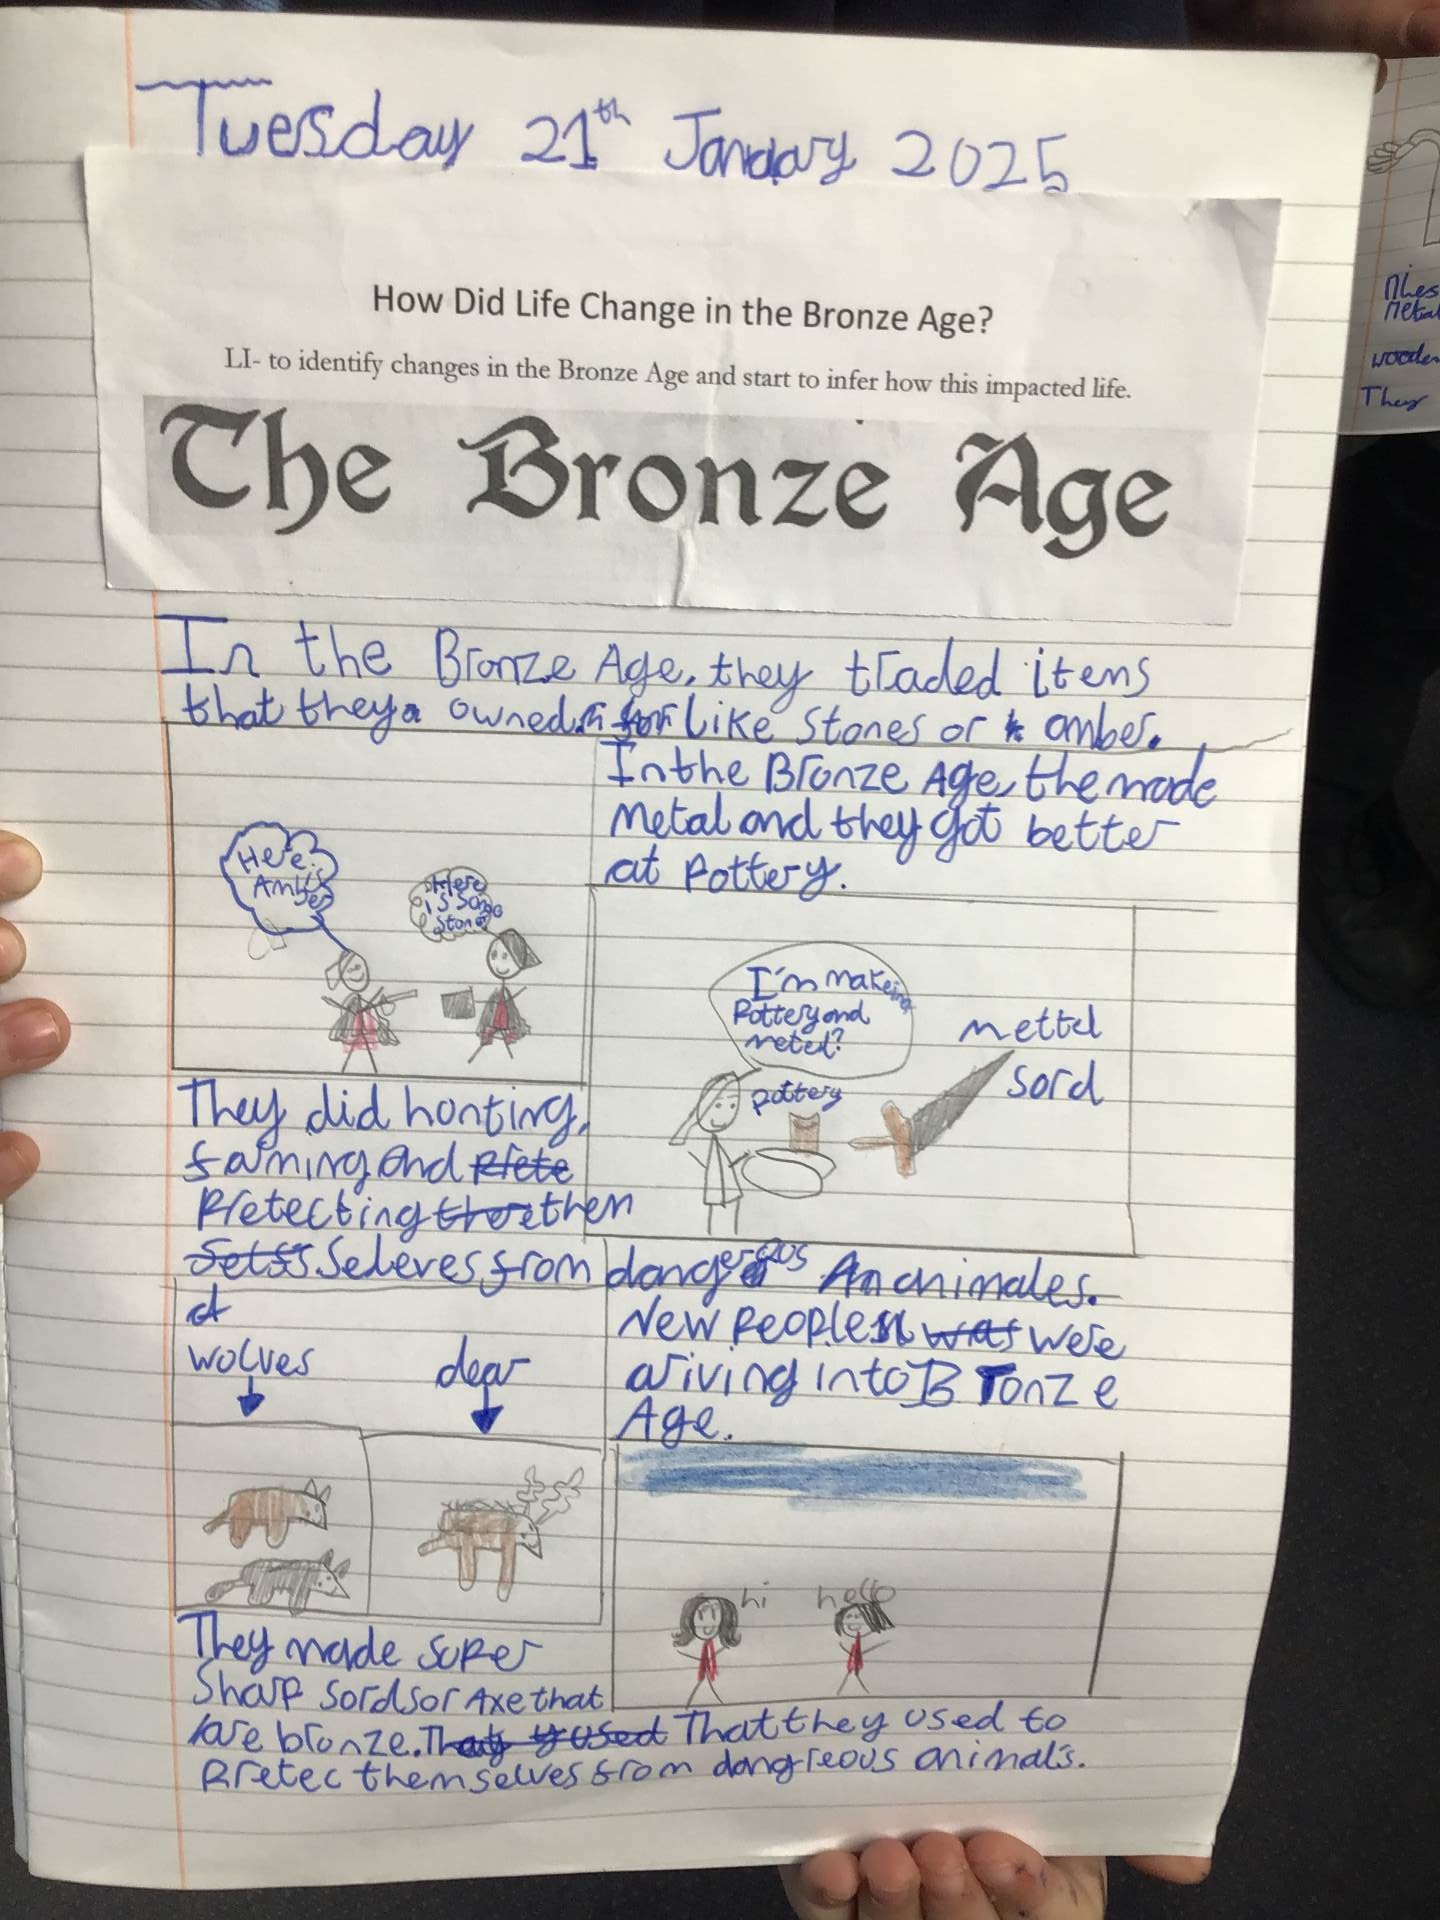 Tuesday 21th January 2025
How Did Life Change in the Bronze Age?
LI- to identify changes in the Bronze Age and start to infer how this impacted life.
The Bronze Age
In the Bronze Age, they traded items
that they owned like stones or amber.
Here
is
Amber
Here
is some
stone
In the Bronze Age, the made
Metal and they got better
at Pottery.
I'm makeing
Pottery and
metel?
pottery
mettel
sord
They did honting,
farming and
Pretecting them
Seleves from dangerous An animales.
wolves
dear
New People were
ariving into Bronze
Age.
hi
hello
They made super
Sharp sords or Axe that
are bronze. That they used to
Pretec themselves from dangreous animals.
nhes
Metal
wooden
They